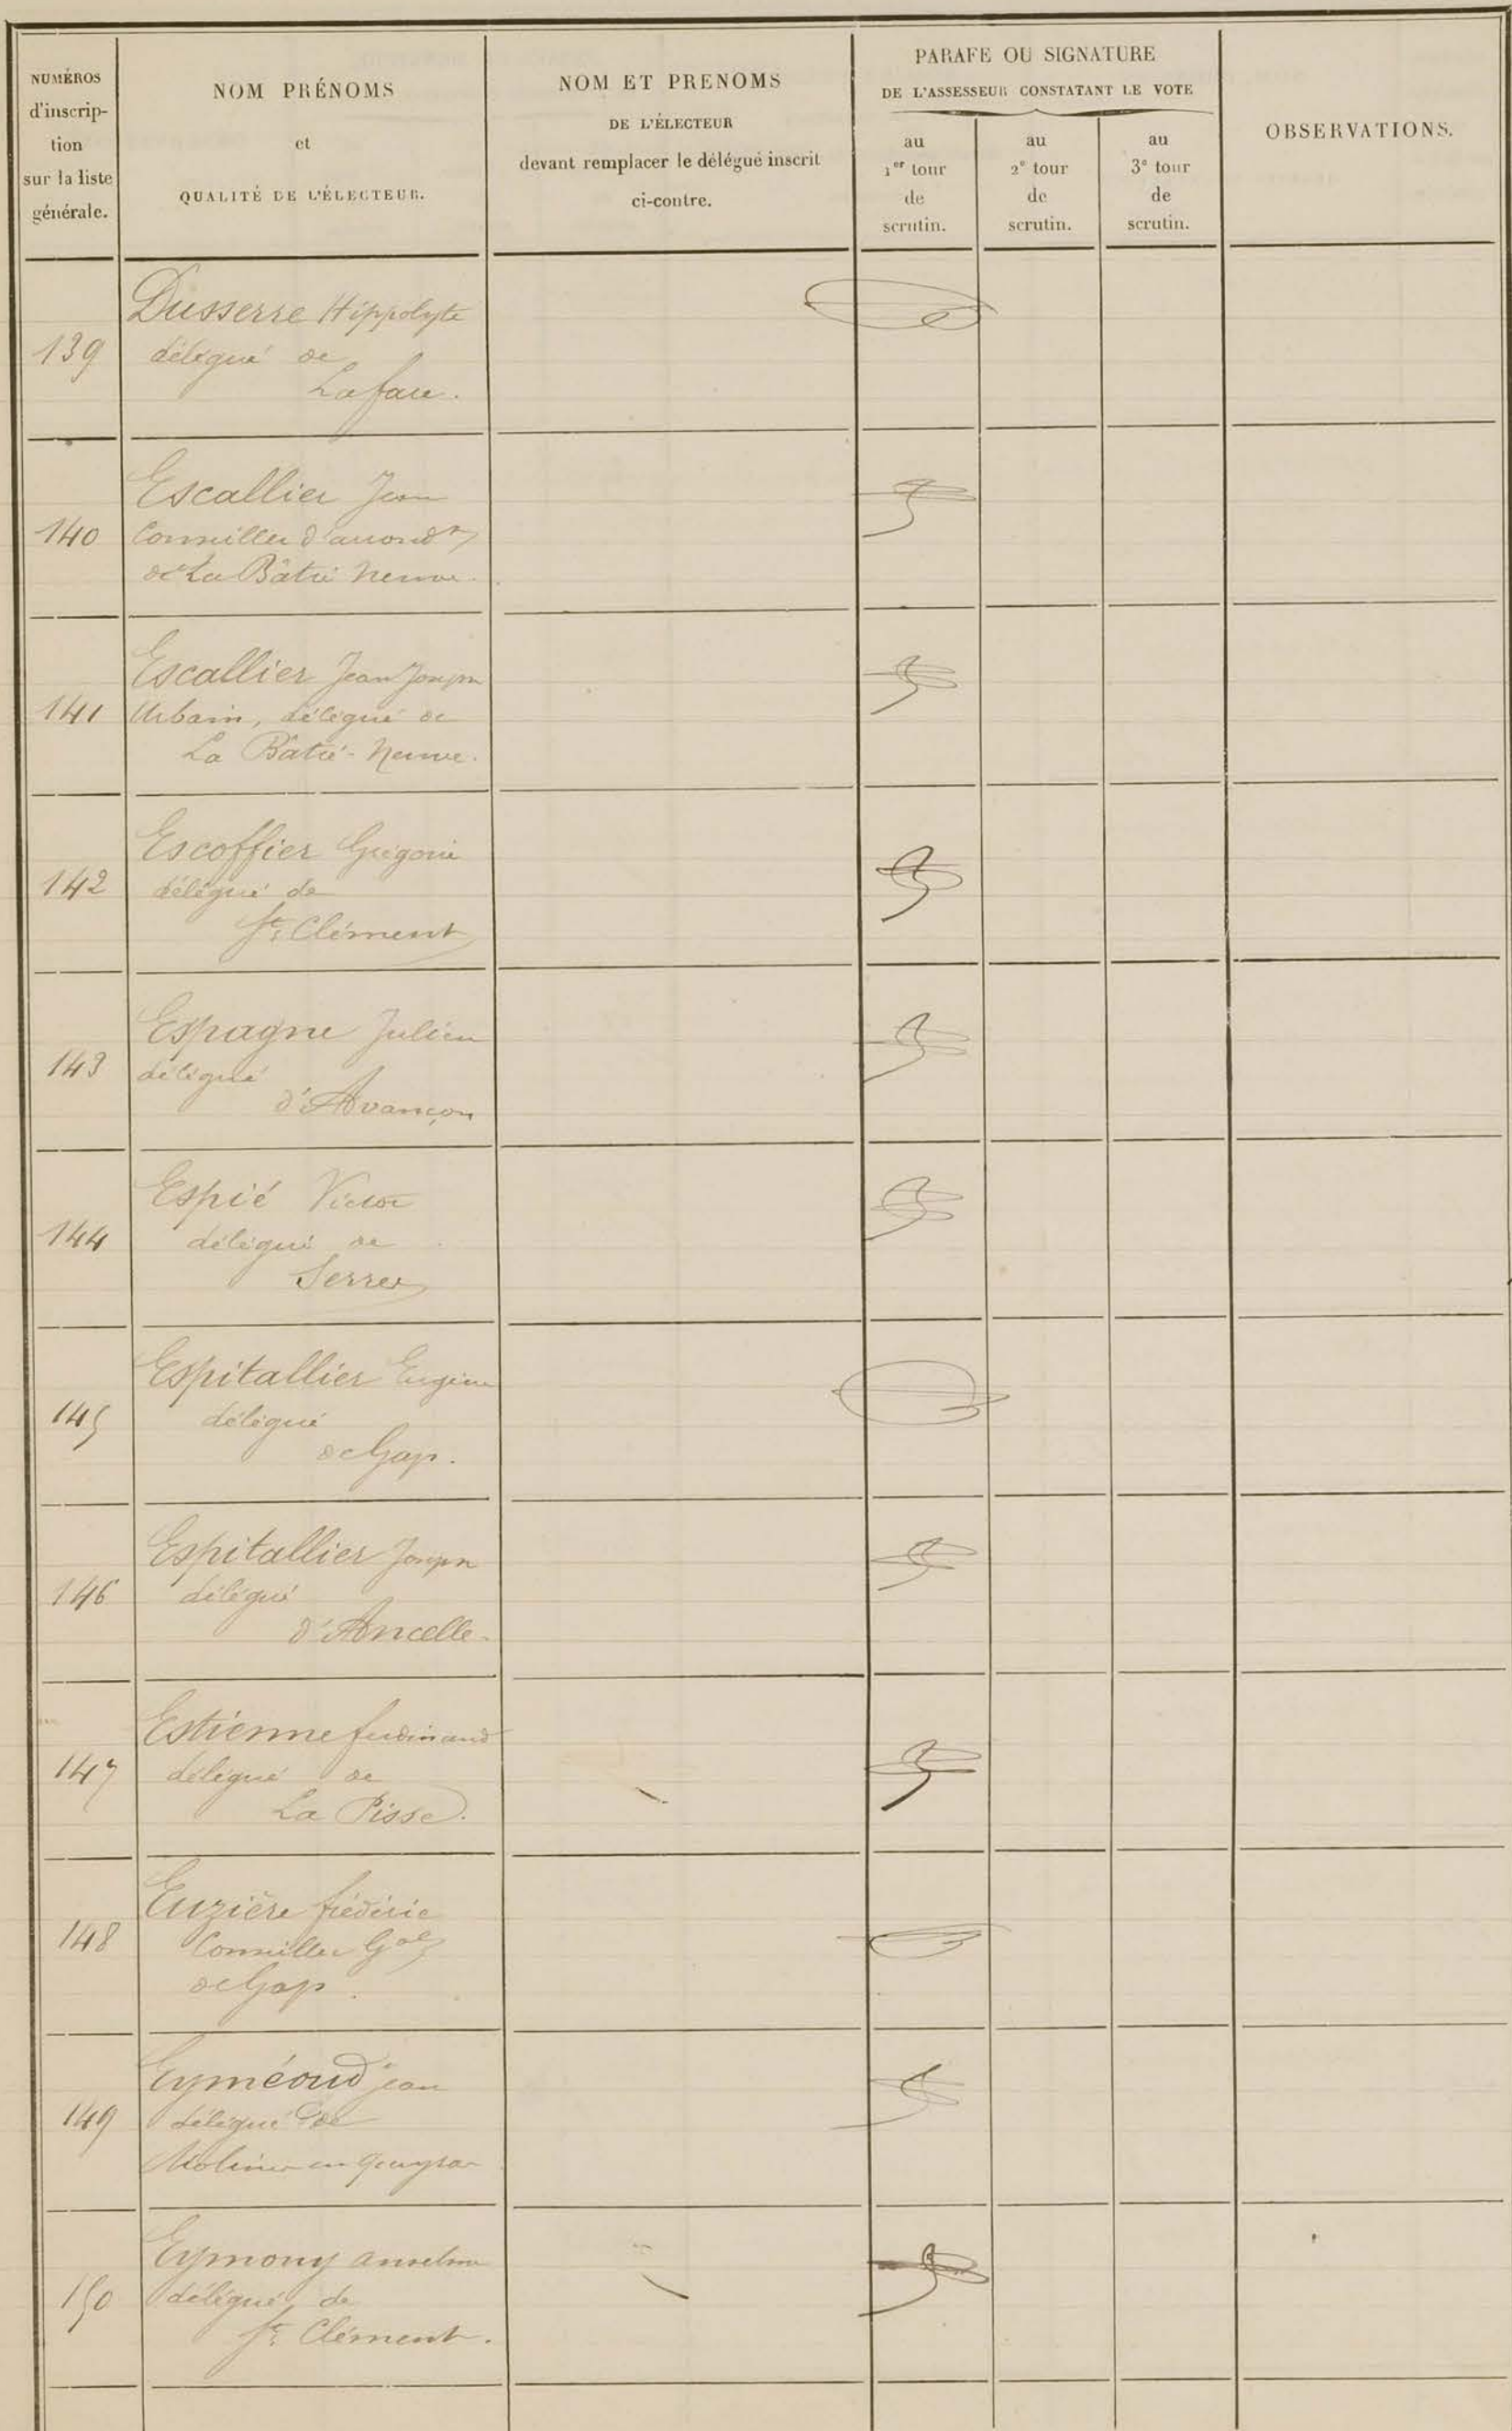 NUMÉROS
d'inscrip-
tion
sur la liste
générale.
NOM PRÉNOMS
et
QUALITÉ DE L'ÉLECTEUR.
NOM ET PRENOMS
DE L'ÉLECTEUR
devant remplacer le délégué inscrit
ci-contre.
PARAFE OU SIGNATURE
DE L'ASSESSEUR CONSTATANT LE VOTE
au
1er tour
de
scrutin.
au
2e tour
de
scrutin.
au
3e tour
de
scrutin.
OBSERVATIONS.
139
Dusserre Hippolyte
délégué de
Lafare.
140
Escallier Jean
Conseiller d'arrondt
de La Bâtie Neuve.
141
Escallier Jean Joseph
Urbain, délégué de
La Bâtie-Neuve.
142
Escoffier Grégoire
délégué de
St Clément
143
Espagne Julien
délégué
d'Avançon
144
Espié Victor
délégué de
Serres
145
Espitallier Eugène
délégué
de Gap.
146
Espitallier Joseph
délégué
d'Ancelle.
147
Estienne ferdinand
délégué de
La Pisse.
148
Euzière frédéric
Conseiller Gal
de Gap.
149
Eyméoud jean
délégué de
Molines en queyras
150
Eymony anselme
délégué de
St Clément.